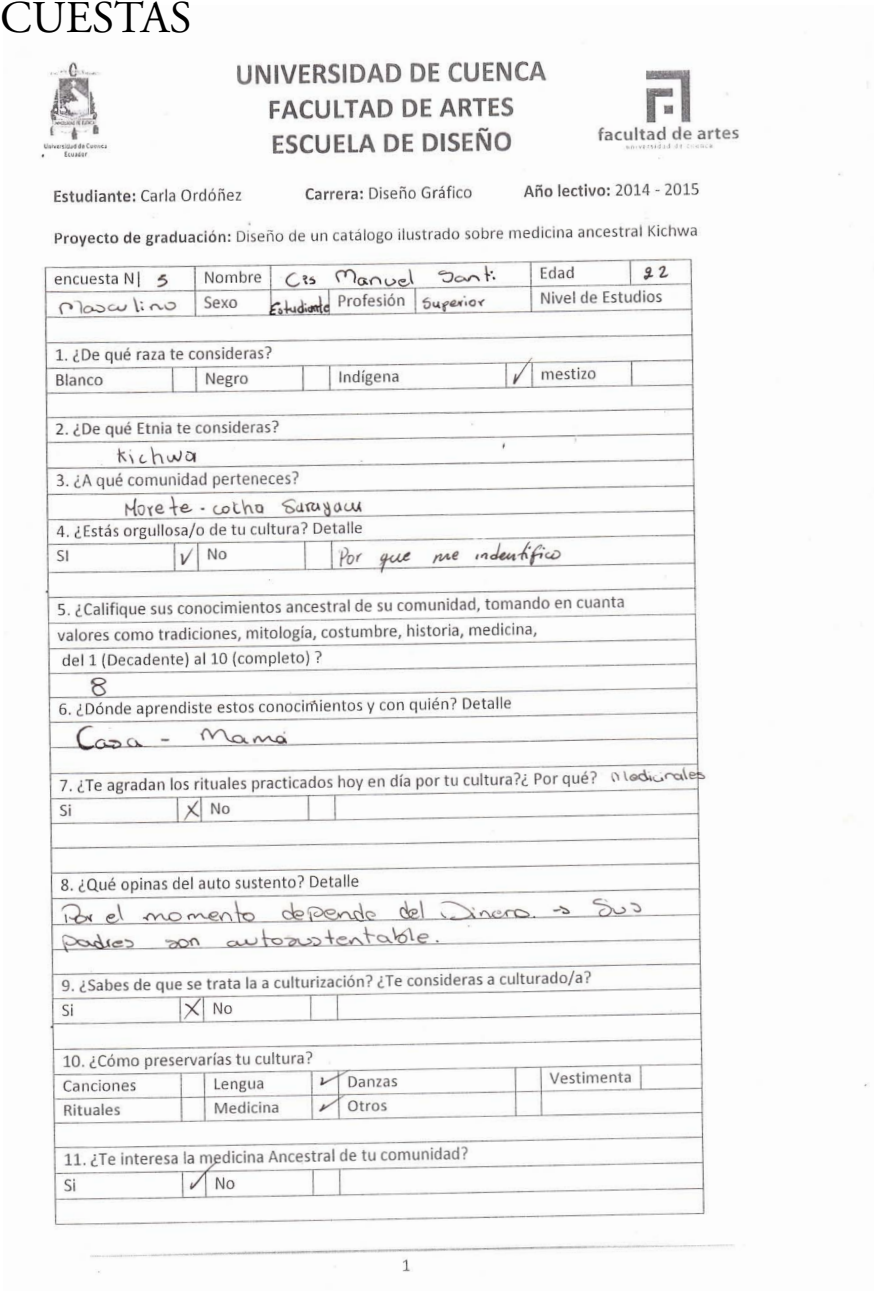 CUESTAS
UNIVERSIDAD DE CUENCA
FACULTAD DE ARTES
ESCUELA DE DISEÑO
Universidad de Cuenca
Ecuador
facultad de artes
universidad de cuenca
Estudiante: Carla Ordóñez Carrera: Diseño Gráfico Año lectivo: 2014 - 2015
Proyecto de graduación: Diseño de un catálogo ilustrado sobre medicina ancestral Kichwa
encuesta N| 5 Nombre Manuel Santi Edad 22
Masculino Sexo Estudiante Profesión Superior Nivel de Estudios
1. ¿De qué raza te consideras?
Blanco Negro Indígena ✓ mestizo
2. ¿De qué Etnia te consideras?
Kichwa
3. ¿A qué comunidad perteneces?
Morete - cocha Sarayacu
4. ¿Estás orgullosa/o de tu cultura? Detalle
SI ✓ No Por que me indentifico
5. ¿Califique sus conocimientos ancestral de su comunidad, tomando en cuanta
valores como tradiciones, mitología, costumbre, historia, medicina,
del 1 (Decadente) al 10 (completo) ?
8
6. ¿Dónde aprendiste estos conocimientos y con quién? Detalle
Casa - Mamá
7. ¿Te agradan los rituales practicados hoy en día por tu cultura?¿ Por qué? Medicinales
Si X No
8. ¿Qué opinas del auto sustento? Detalle
Por el momento depende del Dinero. → Sus
padres son autosustentable.
9. ¿Sabes de que se trata la a culturización? ¿Te consideras a culturado/a?
Si X No
10. ¿Cómo preservarías tu cultura?
Canciones Lengua ✓ Danzas Vestimenta
Rituales Medicina ✓ Otros
11. ¿Te interesa la medicina Ancestral de tu comunidad?
Si ✓ No
1